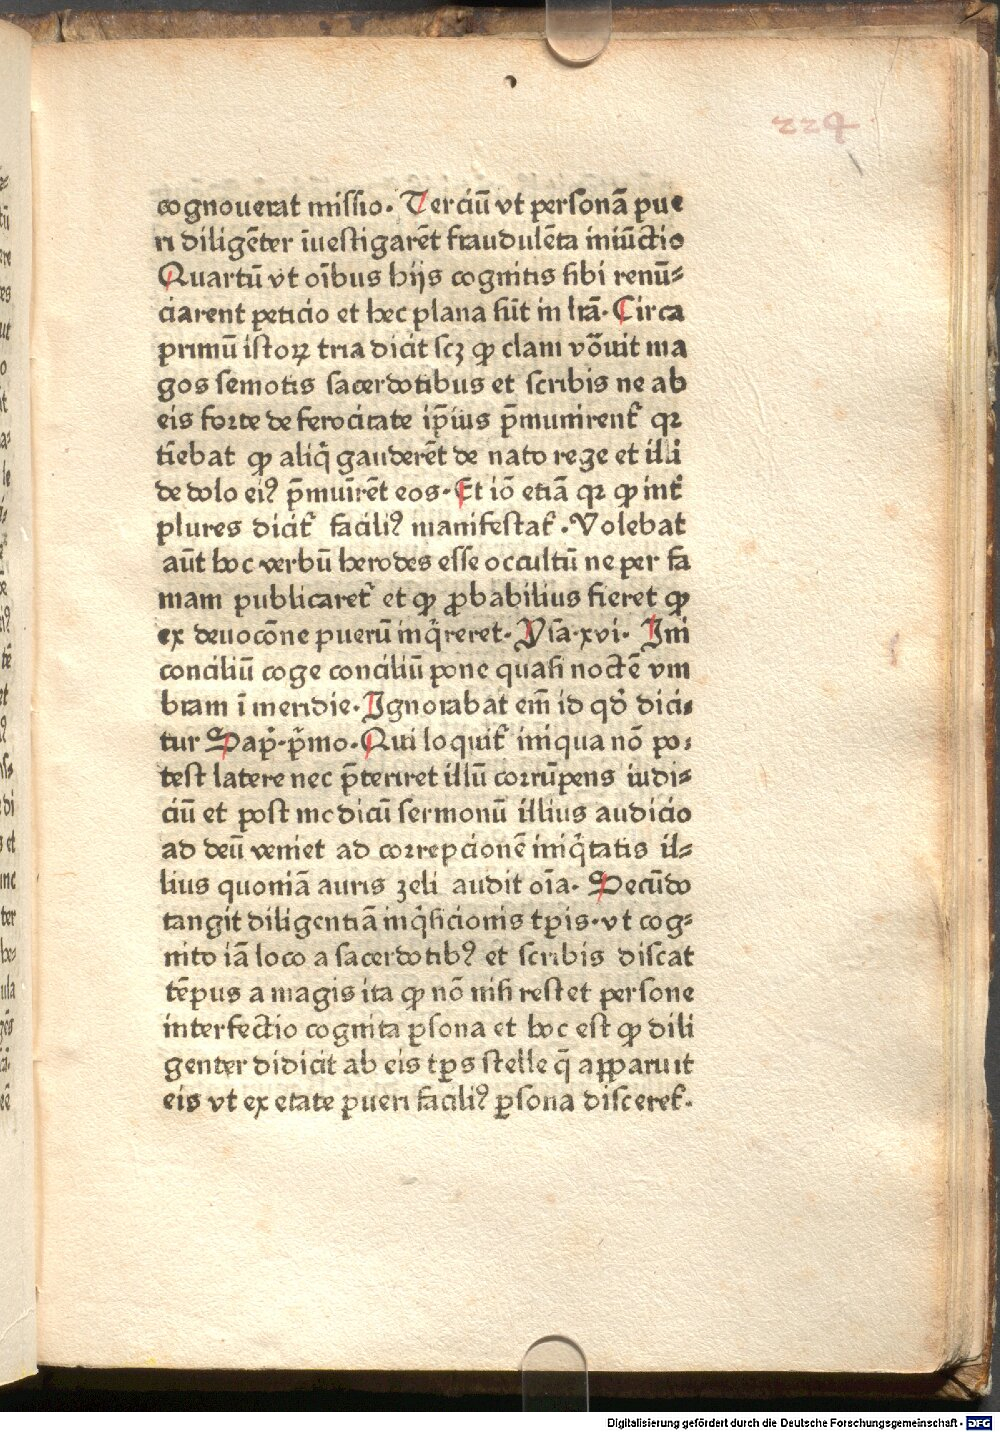 224
cognouerat missio. Terciū vt personā pue
ri diligēter īuestigarēt fraudulēta iniūctio
Quartū vt oībus hijs cognitis sibi renū-
ciarent peticio et hec plana sūt in lrā. Circa
primū istoꝝ tria dicit scꝫ ꝙ clam võuit ma
gos semotis sacerdotibus et scribis ne ab
eis forte de ferocitate ip̄ius p̄munirent᷑ qꝛ
tīebat ꝙ aliq̄ gauderēt de nato rege et illi
de dolo eiꝰ p̄muīrēt eos. Et iō etiā qꝛ ꝙ int᷑
plures dicit᷑ faciliꝰ manifestat᷑. Volebat
aūt hoc verbū herodes esse occultū ne per fa
mam publicaret᷑ et ꝙ ꝓbabilius fieret ꝙ
ex deuocōne puerū inq̄reret. Ysa.xvi. Ini
conciliū coge conciliū pone quasi noctē vm
bram ī meridie. Ignorabat em̄ id qd̄ dici-
tur Sap̄. p̄mo. Qui loquit᷑ iniqua nō po-
test latere nec p̄teriret illū corrūpens iudi-
ciū et post modicū sermonū illius audicio
ad deū veniet ad correpcionē iniq̄tatis il-
lius quoniā auris zeli audit oīa. Secūdo
tangit diligentiā inq̄sicionis tp̄is. vt cog-
nito iā loco a sacerdotibꝰ et scribis discat
tēpus a magis ita ꝙ nō nisi restet persone
interfectio cognita ꝑsona et hoc est ꝙ dili
genter didicit ab eis tp̄s stelle q̄ apparuit
eis vt ex etate pueri faciliꝰ ꝑsona disceret᷑.
Digitalisierung gefördert durch die Deutsche Forschungsgemeinschaft - DFG